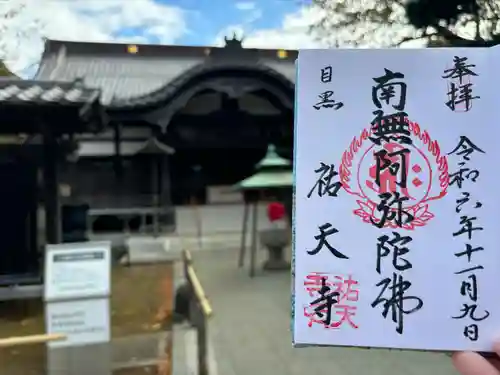 奉拝
令和六年十一月九日
南無阿弥陀佛
目黒
祐天寺
祐天
寺印